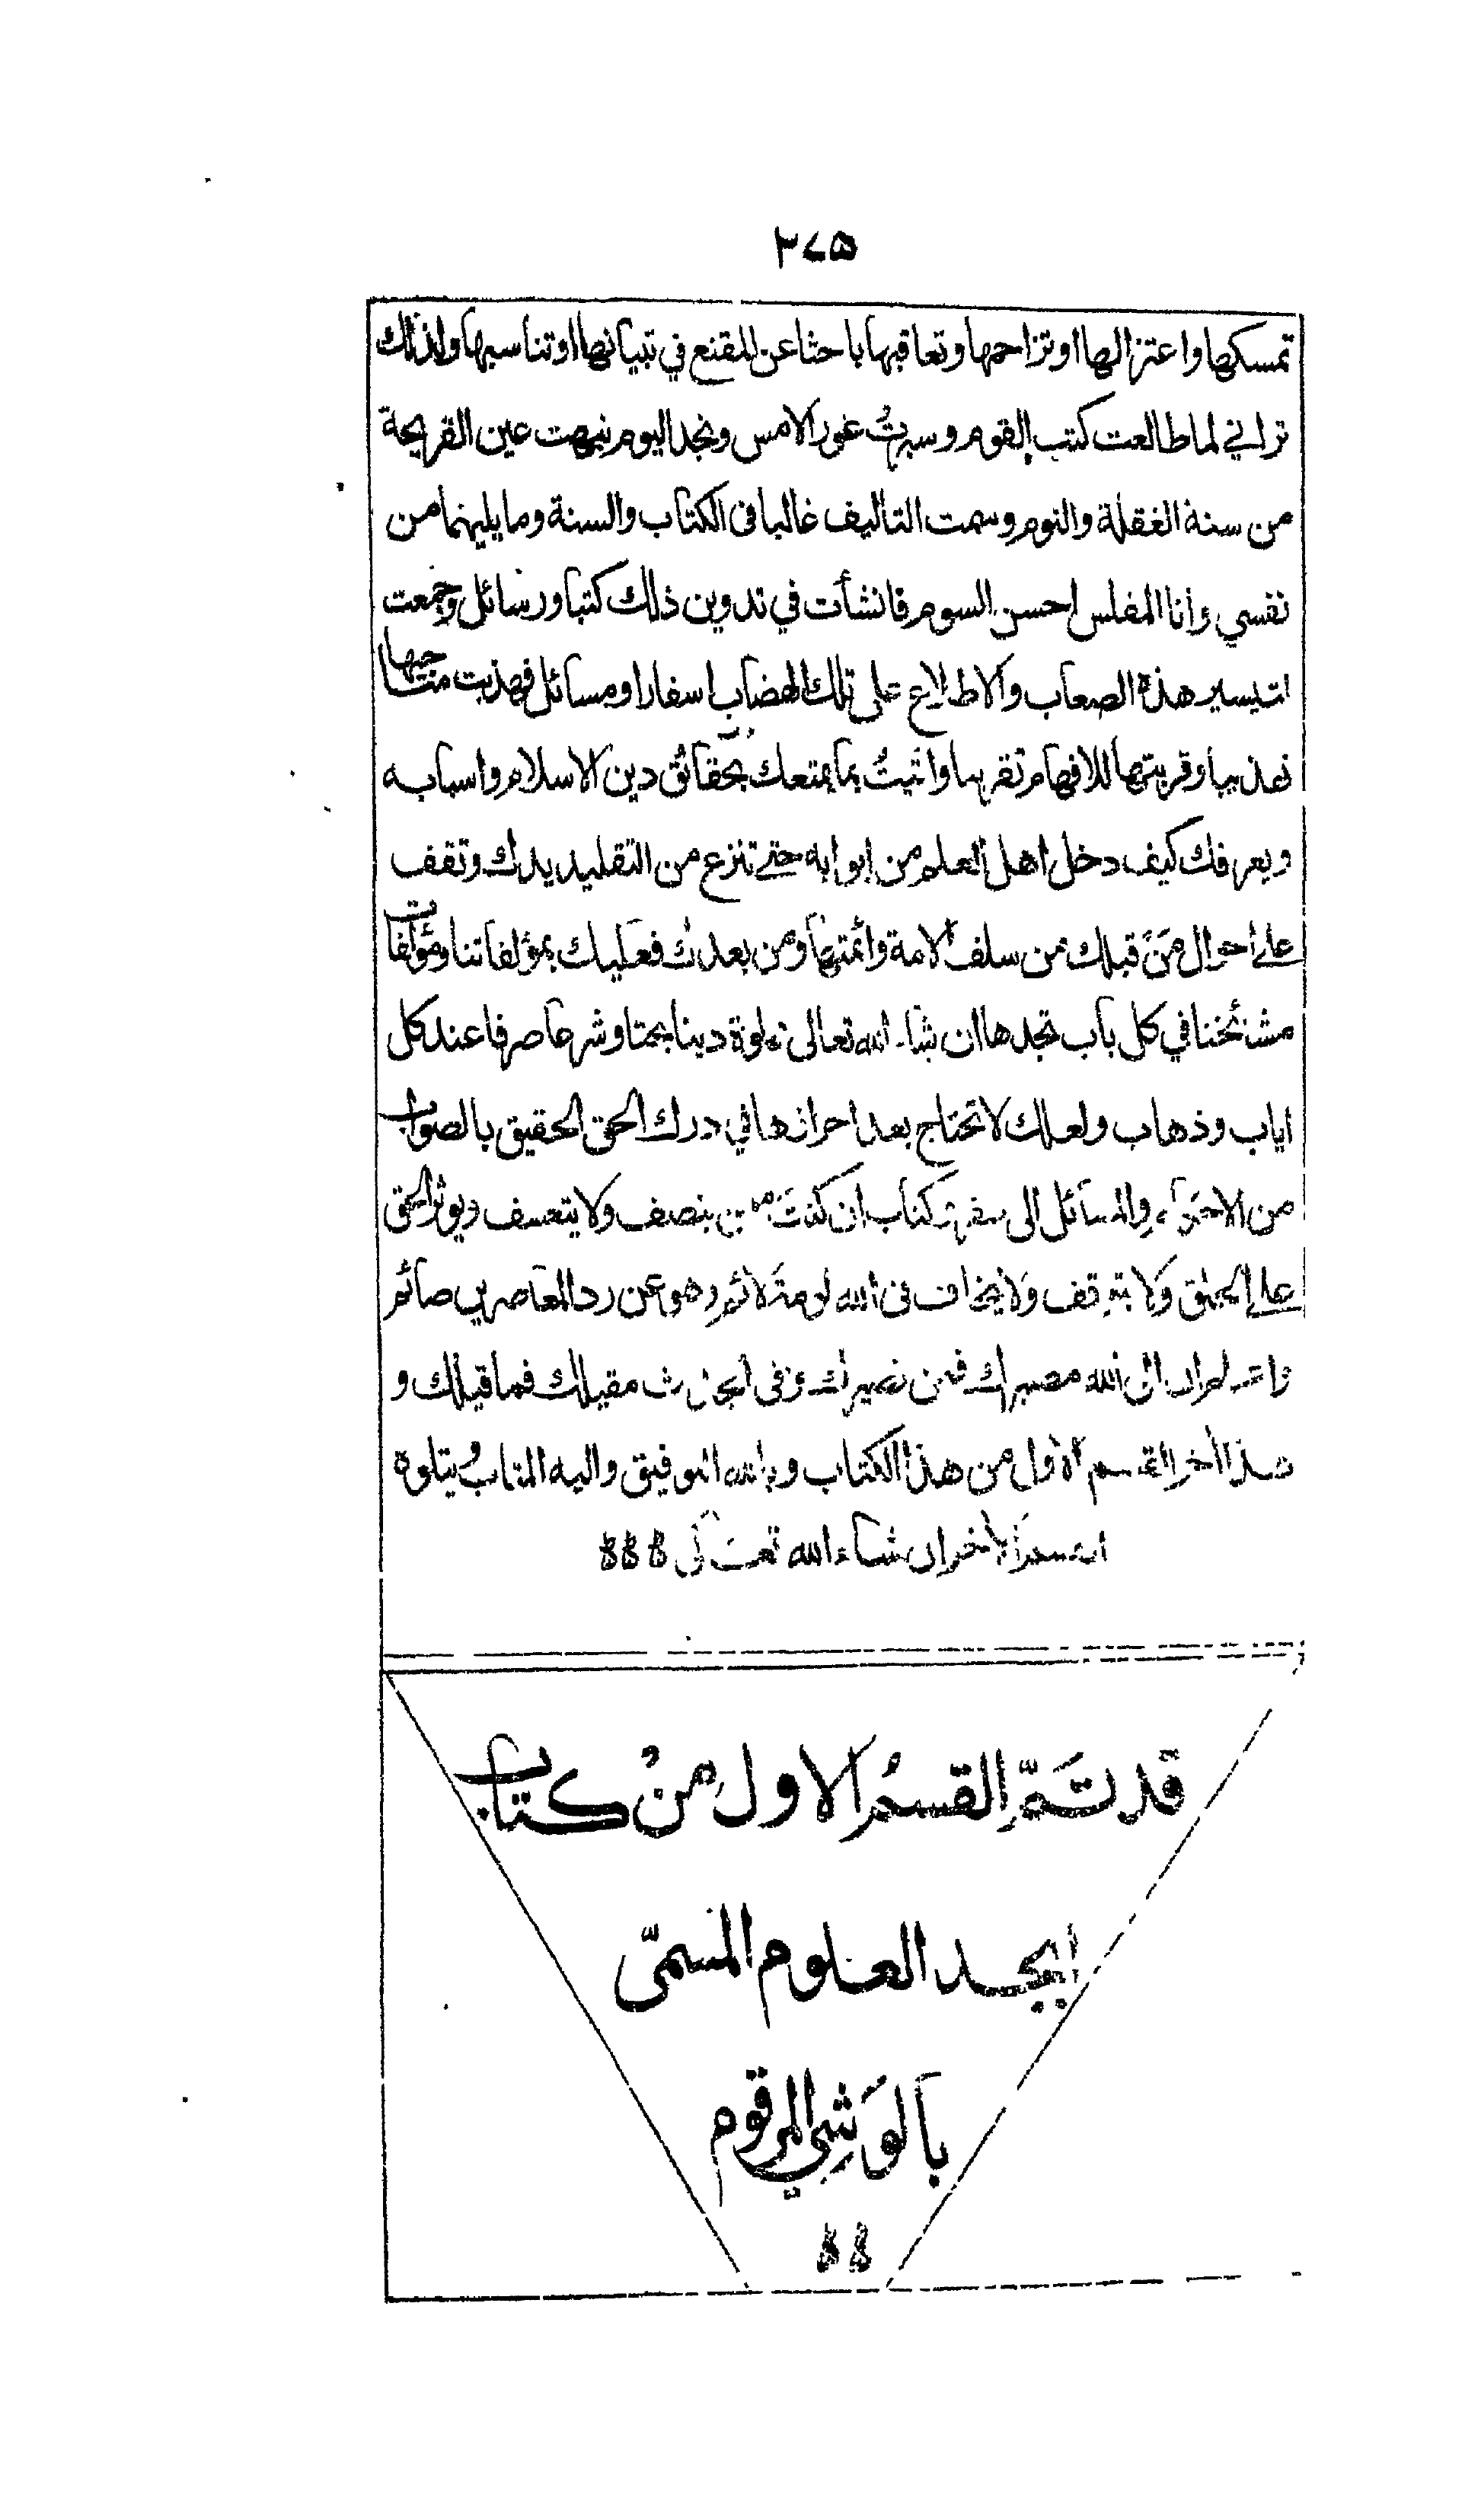 ٢٧٥
تمسكها واعتزالها او تزاحمها وتعاقبها باحثا عن المقنع في تبيانها او تناسبها ولذلك
تراني لما طالعت كتب القوم وسبرتُ غور الامس ونجد اليوم نبهت عين القريحة
من سنة الغفلة والنوم وسمت التاليف غالبا فى الكتاب والسنة وما يليهما من
نفسي وانا المفلس احسن السوم فانشأت في تدوين ذلك كتبا ورسائل وجمعت
لتيسير هذه الصعاب والاطلاع على تلك الهضاب اسفارا ومسائل فهذبت مناحيها
تهذيبا وقربتها للافهام تقريبا واتيتُ بما يمتعك بحقائق دين الاسلام واسبابه
ويعرفك كيف دخل اهل العلم من ابوابه حتى تنزع من التقليد يدك وتقف
على احوال مَنْ قبلك من سلف الامة وائمتها ومن بعدك فعليك بمؤلفاتنا ومؤلفات
مشائخنا في كل باب تجدها ان شاء الله تعالى دينا بحتا وشرعا صرفا عند كل
اياب وذهاب ولعلك لا تحتاج بعد احرازها في درك الحق الحقيق بالصواب
من والمسائل الى كتاب ان كنتَ ممن ينصف ولا يتعسف ويوثر الحق
على الخلق ولا يتوقف ولا يخاف فى الله لومة لائم وهو عن رد المعاصرين صائم
واعلم ان الى الله مصيرك فمن نصيرك وفى مقيلك فما قيلك و
هذا أخر القسم الاول من هذا الكتاب وبالله التوفيق واليه المتاب ويتلوه
القسم الأخر ان شاء الله تعالى
قد تمّ القسمُ الاول منُ كتاب
ابجد العلوم المسمّى
بالوَشِي المرقوم